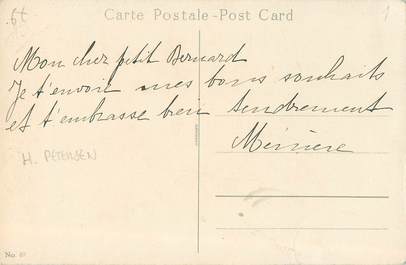 6t
1
Carte Postale-Post Card
Mon cher petit Bernard
Je t'envoie mes bons souhaits
et t'embrasse bien tendrement
H. PETERSEN
No.